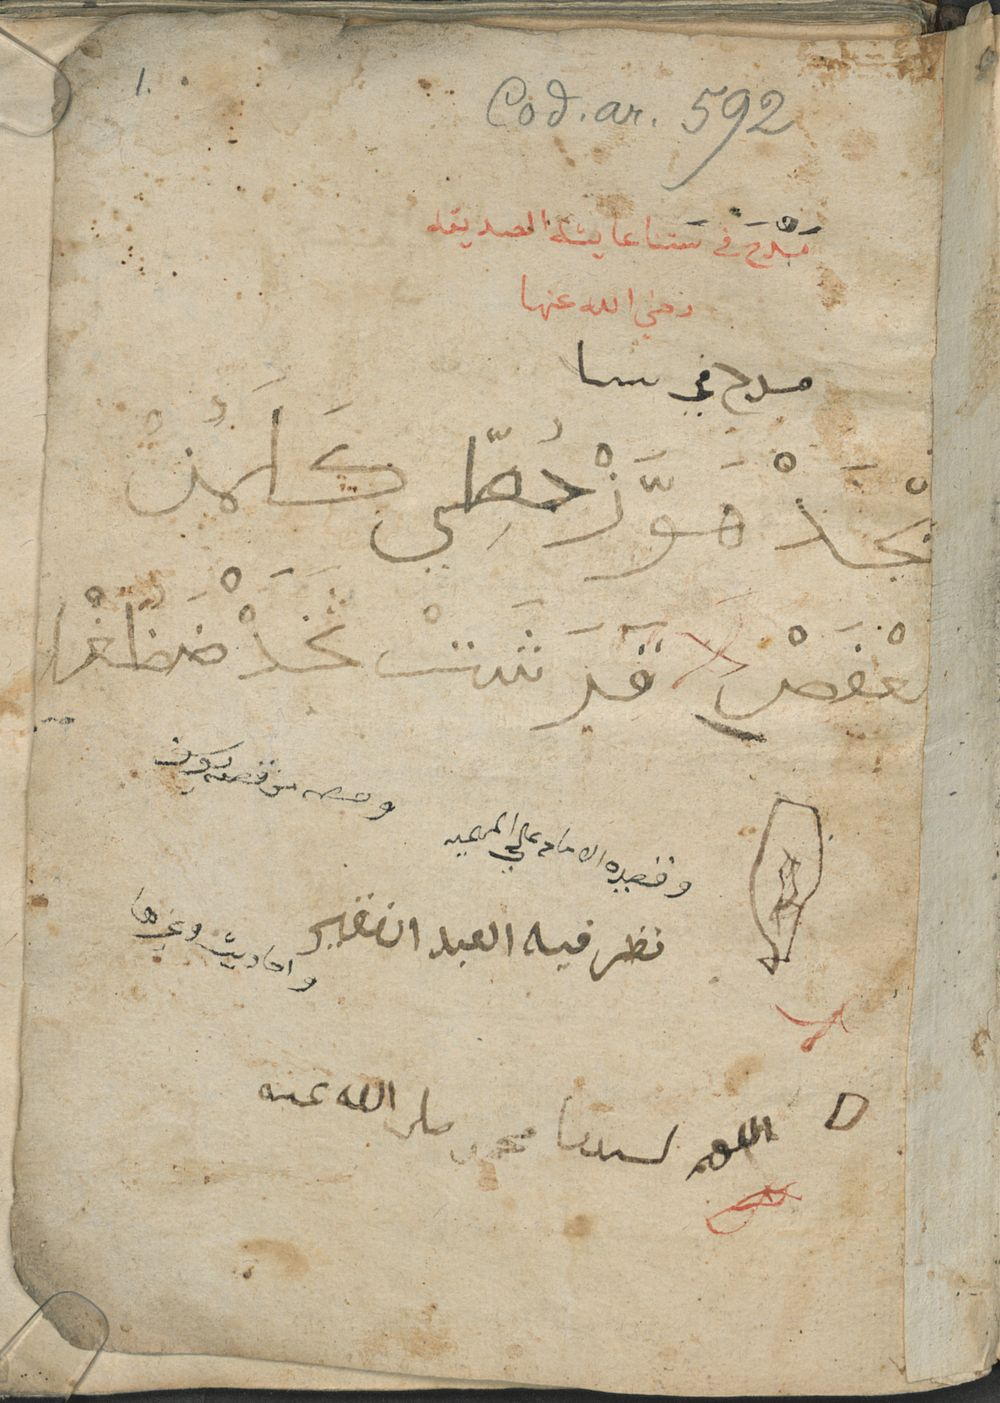 1.
Cod. ar. 592
مدح في ستنا عايشه الصديقه
رضي الله عنها
مدح في ستنا
بْجَدْ هَوَّزْ حُطِّي كَلَمُنْ
عْفَصْ قَرَشَتْ ثَخَذْ ضَظَغْلا
وقصه
وقصيده الامام علي
نظر فيه العبد الفقير
واحاديث وغيرها
اللهم لسيدنا محمد صلى الله عليه